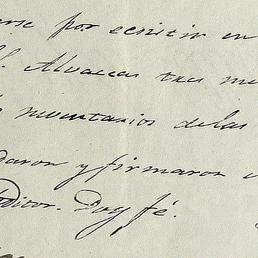 erse por escritir en
l. Alvarez tres me
inventarios de las
daron y firmaron
ditor. Doy fé.